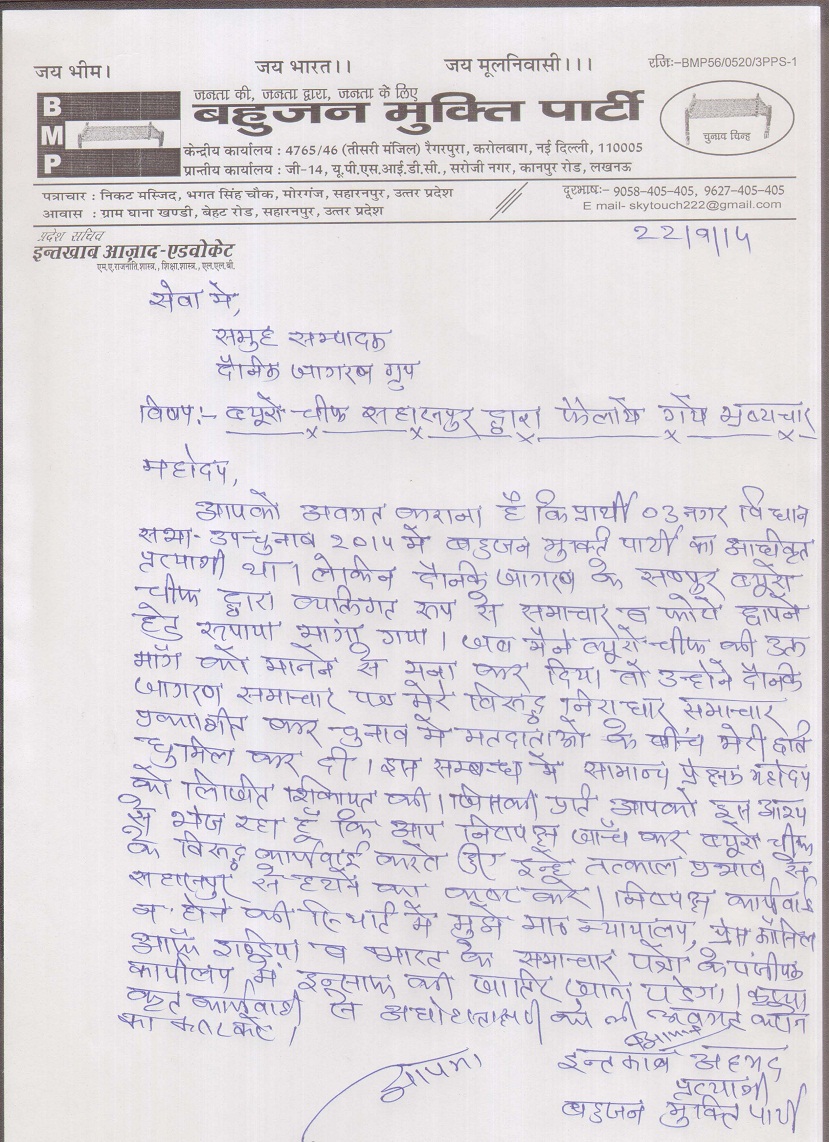 जय भीम।
जय भारत।।
जय मूलनिवासी।।।
रजिः-BMP56/0520/3PPS-1
BMP
जनता की, जनता द्वारा, जनता के लिए
बहुजन मुक्ति पार्टी
चुनाव चिन्ह
केन्द्रीय कार्यालय : 4765/46 (तीसरी मंजिल) रैगरपुरा, करोलबाग, नई दिल्ली, 110005
प्रान्तीय कार्यालय : जी-14, यू.पी.एस.आई.डी.सी., सरोजी नगर, कानपुर रोड, लखनऊ
पत्राचार : निकट मस्जिद, भगत सिंह चौक, मोरगंज, सहारनपुर, उत्तर प्रदेश
दूरभाषः- 9058-405-405, 9627-405-405
आवास : ग्राम घाना खण्डी, बेहट रोड, सहारनपुर, उत्तर प्रदेश
E mail- skytouch222@gmail.com
प्रदेश सचिव
इन्तखाब आज़ाद-एडवोकेट
एम.ए.राजनीति.शास्त्र., शिक्षा.शास्त्र., एल.एल.बी.
22/9/14
सेवा मे,
समुह सम्पादक
दैनिक जागरण ग्रुप
विषय:- ब्यूरो-चीफ सहारनपुर द्वारा फैलाये गये भ्रष्टाचार
महोदय,
आपको अवगत कराना है कि प्रार्थी 03 नगर विधान
सभा-उपचुनाव 2014 मे बहुजन मुक्ति पार्टी का अधिकृत
प्रत्याशी था। लेकिन दैनिक जागरण के सहारनपुर ब्यूरो
चीफ द्वारा व्यक्तिगत रूप से समाचार व फोटो छापने
हेतु रूपाया मांगा गया। जब मैने ब्यूरो-चीफ की उक्त
माँग को मानने से मना कर दिया। तो उन्होने दैनिक
जागरण समाचार पत्र मेरे विरूद्ध निराधार समाचार
प्रकाशीत कर चुनाव मे मतदाताओ के बीच मेरी छवि
धुमिल कर दी। इस सम्बन्ध मे सामान्य प्रेक्षक महोदय
को लिखीत शिकायत की। जिसकी प्रति आपको इस आशय
से भेज रहा हूँ कि आप निष्पक्ष जाँच कर ब्यूरो चीफ
के विरूद्ध कार्यवाई करते हुए इन्हे तत्काल प्रभाव से
सहारनपुर से हटाने का कष्ट करे। निष्पक्ष कार्यवाई
न होने की स्थिति मे मुझे मा० न्यायालय, प्रेस कौंसिल
ऑफ इण्डिया व भारत के समाचार पत्रो के पंजीयक
कार्यालय मे इन्साफ की खातिर जाना पडेगा। कृप्या
कृत कार्यवाही से अधोहस्ताक्षरी को भी अवगत कराने
का कष्ट करे।
आपका
इन्तखाब अहमद
प्रत्याशी
बहुजन मुक्ति पार्टी